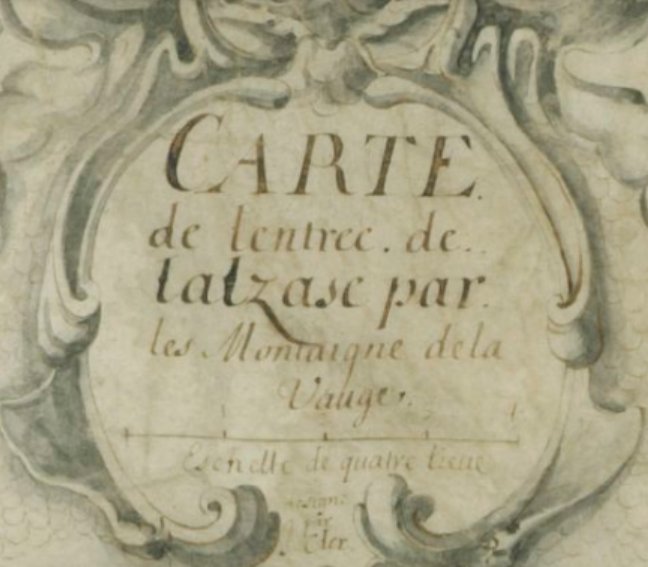 CARTE.
de lentree. de..
lalzase par.
les Montaigne dela
Vauge.
Eschelle de quatre lieue
par